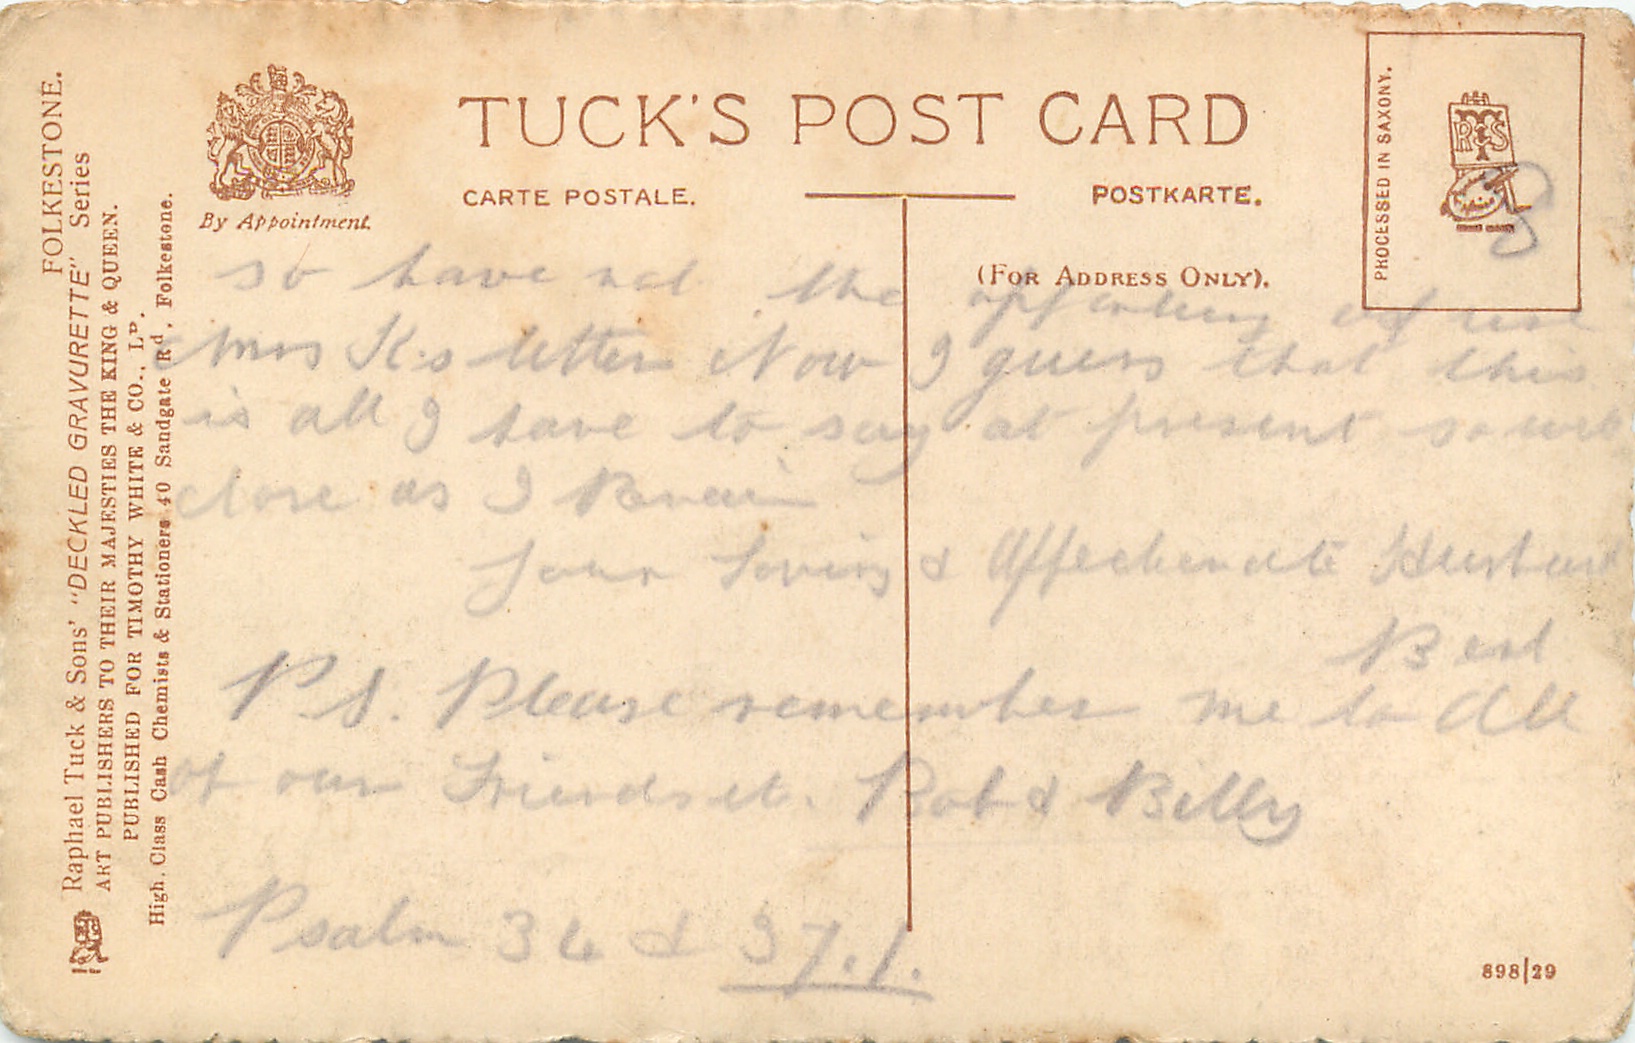 FOLKESTONE.
Raphael Tuck & Sons' "DECKLED GRAVURETTE" Series
ART PUBLISHERS TO THEIR MAJESTIES THE KING & QUEEN.
PUBLISHED FOR TIMOTHY WHITE & CO., LD.
High Class Cash Chemists & Stationers 40 Sandgate Rd, Folkestone.
By Appointment.
TUCK'S POST CARD
CARTE POSTALE.
POSTKARTE.
(FOR ADDRESS ONLY).
PROCESSED IN SAXONY.
8
so have not the
Mrs K.s letter Now I guess that this
is all I have to say at present so will
close as I Remain
Your Loving & Affectionate Husband
Bert
P.S. Please remember me to All
of our Friends etc. Rob & Billy
Psalm 34 & 37.1.
898/29